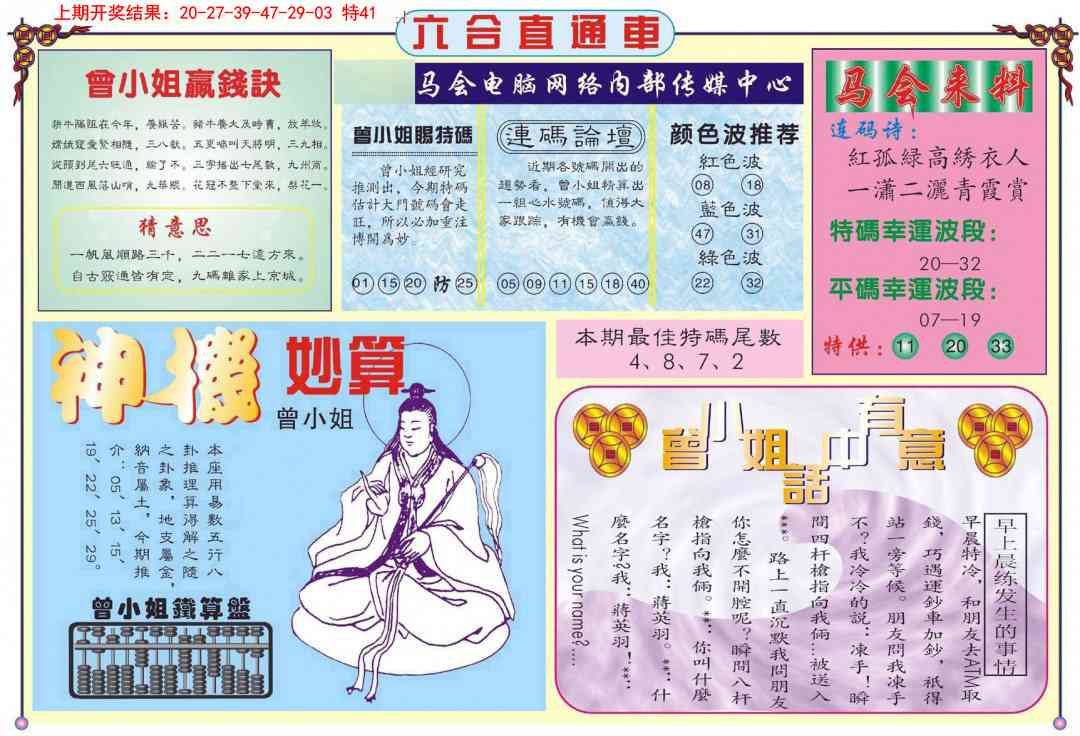 上期开奖结果：20-27-39-47-29-03 特41
六合直通車
马会电脑网络内部传媒中心
曾小姐贏錢訣
猜意思
一帆風順路三千，二二一七遠方來。
自古竅通皆有定，九碼離家上京城。
曾小姐賜特碼
曾小姐經研究
推測出，今期特码
估計大門號碼會走
旺，所以必加重注
博開為妙。
01 15 20 防 25
連碼論壇
近期各號碼開出的
趨勢看，曾小姐精算出
一組心水號碼，值得大
家跟踪，有機會贏錢。
05 09 11 15 18 40
颜色波推荐
紅色波
08 18
藍色波
47 31
綠色波
22 32
马会来料
连码诗：
紅孤緑高綉衣人
一瀟二灑青霞賞
特碼幸運波段：
20—32
平碼幸運波段：
07—19
特供： 11 20 33
神機妙算
曾小姐
本座用易數五行八
卦推理算得解之隨
之卦象，地支屬金，
納音屬土，今期推
介：05、13、15、
19、22、25、29。
曾小姐鐵算盤
本期最佳特碼尾數
4、8、7、2
曾小姐話中有意
早上晨练发生的事情
早晨特冷，和朋友去ATM取
錢，巧遇運鈔車加鈔，祇得
站一旁等候。朋友問我凍手
不？我冷冷的説：凍手！瞬
間四杆槍指向我倆…被送入
***。路上一直沉默我問朋友
你怎麼不開腔呢？瞬間八杆
槍指向我倆。**：你叫什麼
名字？我：蔣英羽。**：什
麼名字？我：蔣英羽！**：
What is your name?....